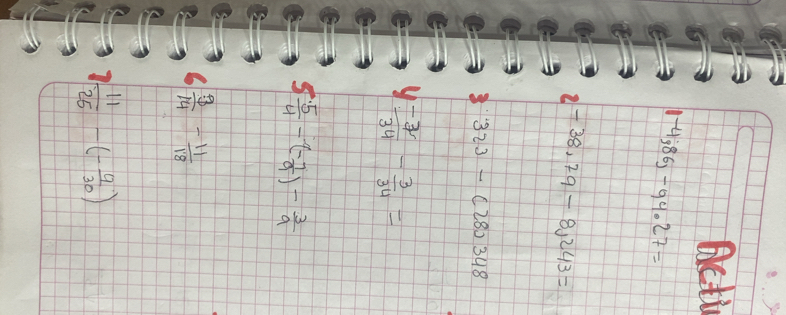 Acti
1 -4,86 - 94.27 =
2 -38,79 - 8,243 =
3 323 - (28,348
4 -7/34 - 3/34 =
5 5/4 - (-7/9) - 3/9
6 3/14 - 11/18
7 11/25 - (-9/30)